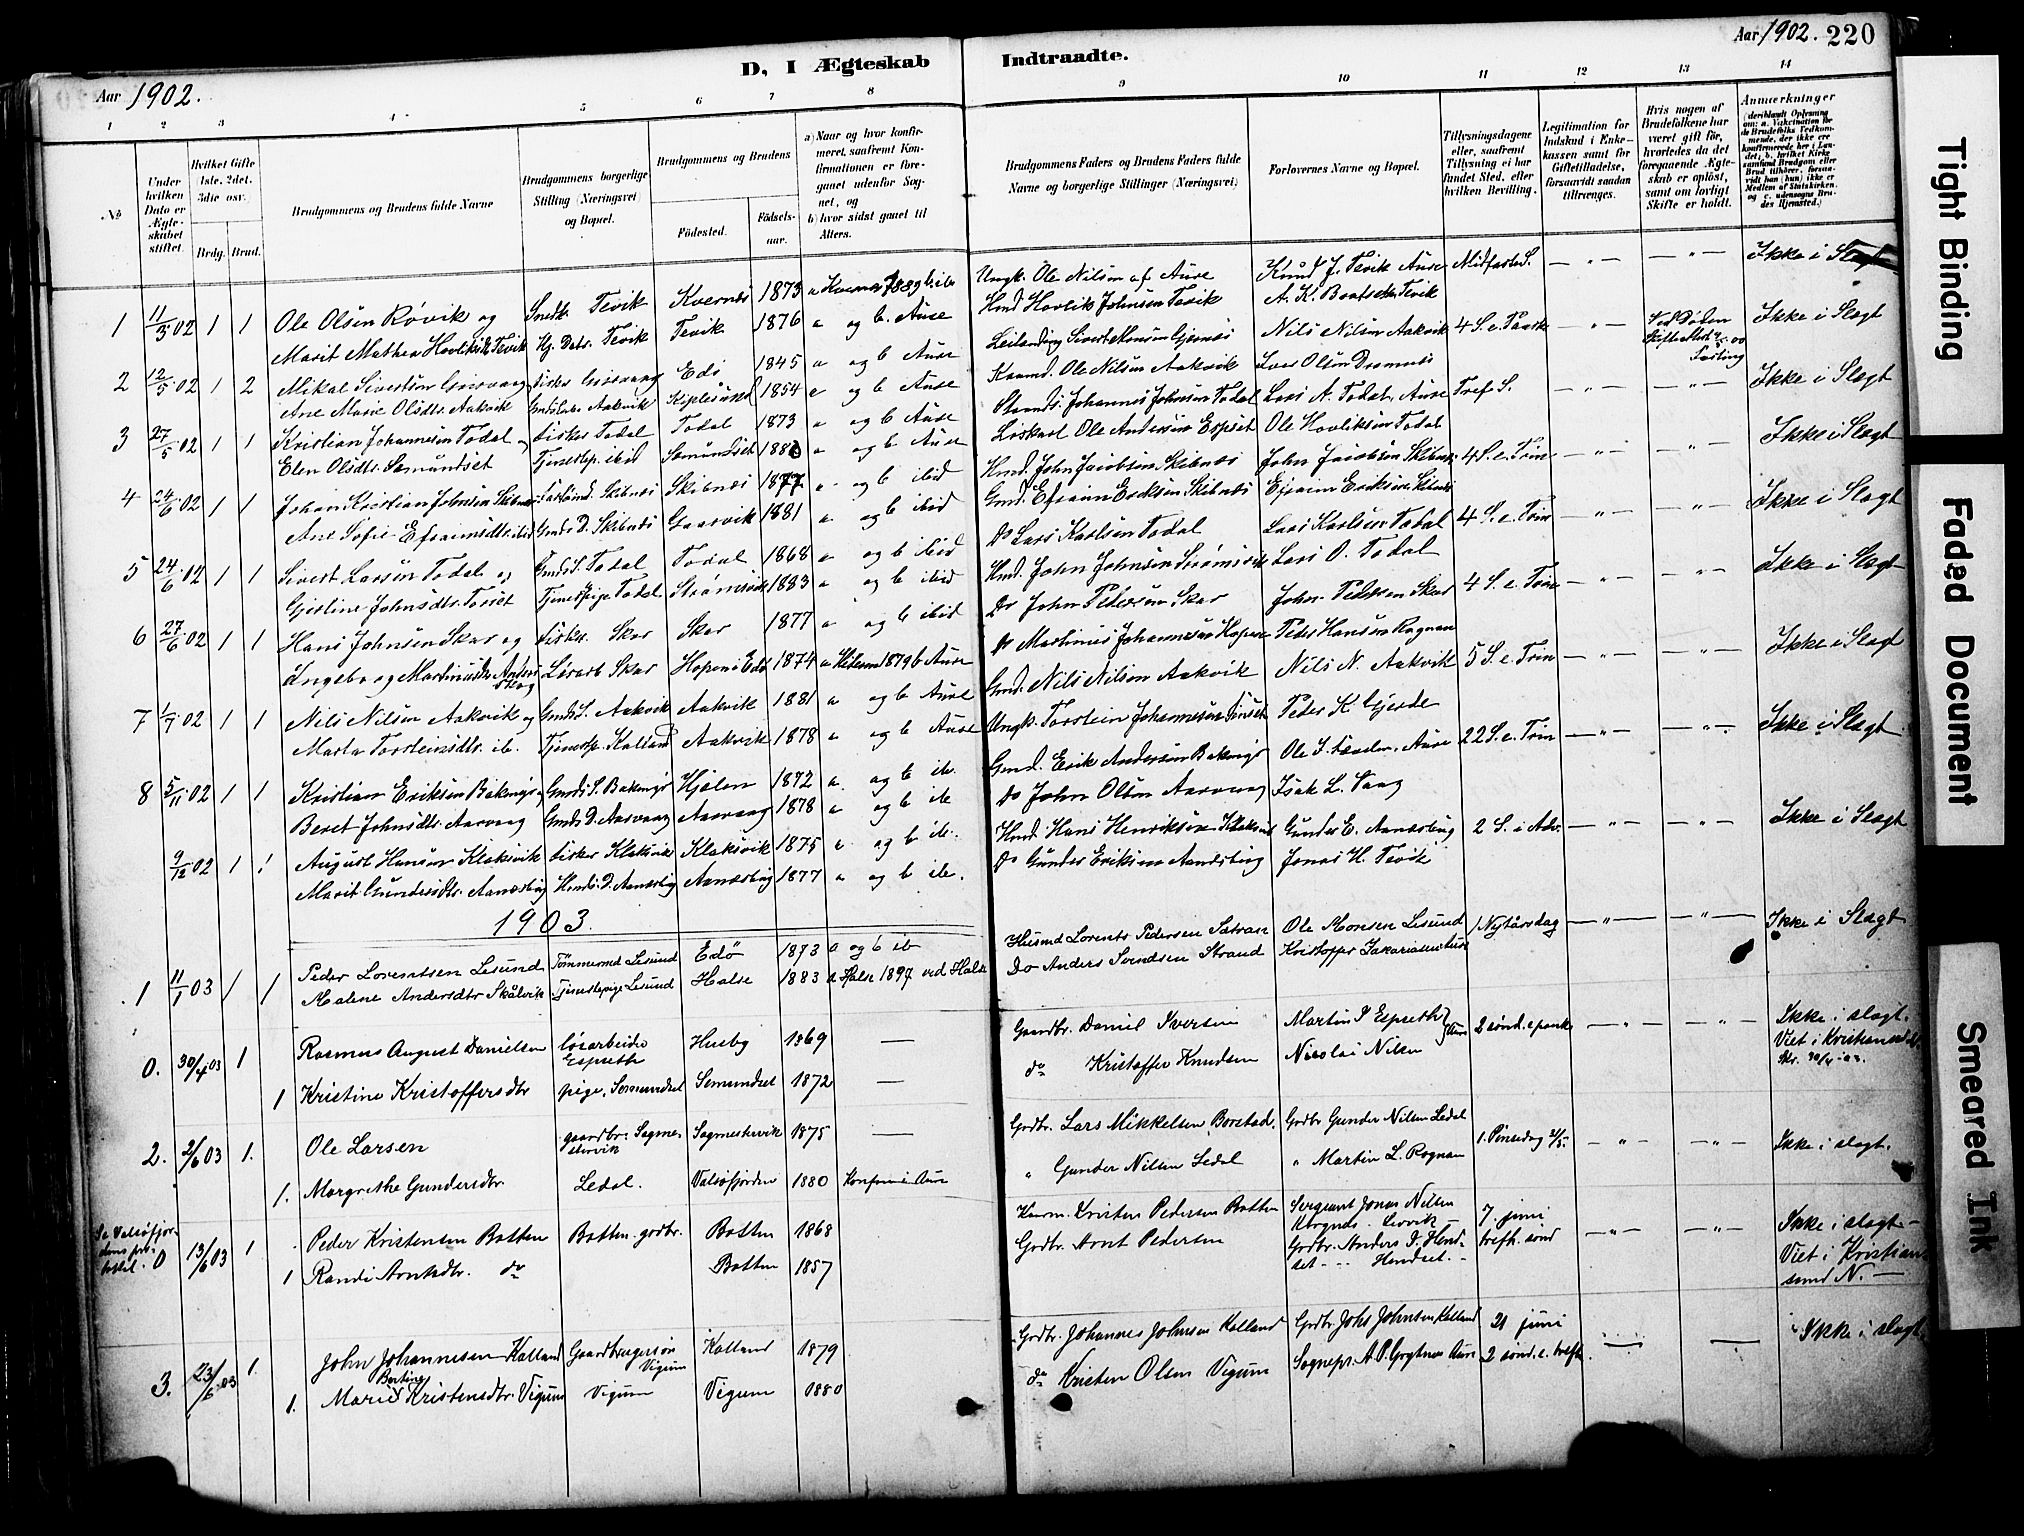 D, I Ægteskab Indtraadte.
Aar 1902.
Aar 1902. 220
1 2 3 4 5 6 7 8 9 10 11 12 13 14
No.
Under hvilken Dato er Ægteskabet stiftet.
Hvilket Gifte (1ste, 2det, 3die osv.)
Brdg. Brud.
Brudgommens og Brudens fulde Navne
Brudgommens borgerlige Stilling (Næringsvei) og Bopæl.
Brudgommens og Brudens
Fødested. Fødselsaar.
a) Naar og hvor konfirmeret, saafremt Konfirmationen er foregaaet udenfor Sognet, og
b) hvor sidst gaaet til Alters.
Brudgommens Faders og Brudens Faders fulde Navne og borgerlige Stillinger (Næringsvei)
Forlovernes Navne og Bopæl.
Tillysningsdagene eller, saafremt Tillysning ei har fundet Sted, efter hvilken Bevilling.
Legitimation for Indskud i Enkekassen samt for Giftetilladelse, forsaavidt saadan tiltrænges.
Hvis nogen af Brudefolkene har været gift før, hvorledes da det foregaaende Ægteskab er opløst, samt om lovligt Skifte er holdt.
Anmærkninger (deriblandt Oplysning om: a. Vakcination for de Brudefolks Vedkommende, der ikke ere konfirmerede her i Landet; b. hvilket Kirkesamfund Brudgom eller Brud tilhører, forsaavidt han (hun) ikke er Medlem af Statskirken, og c. udensogns Brudes Hjemsted.)
1 11/3 02 1 1 Ole Olsen Røvik og Snedk. Tevik Kvernes 1873 a Kvernes 1889 b. ibi Ungk. Ole Nilsen af Aure Knud J. Tevik Aure Midfaste S. — " — — " — Ikke i Slægt
Marit Mathea Hovliksdtr. Tevik Hj. Datr. Tevik Tevik 1876 a og b. Aure Hmd Hovlik Johnsen Tevik A. K. Tevik
2 12/5 02 1 2 Mikal Sivertsen Fisker Edø 1845 a og b Aure Nils Nilsen Aakvik 4 S. e. Paask — " — Ved Døden Ikke i Slægt
Ane Marie Olsdtr. Aakvik Aakvik 1854 a og b Aure Ole Nilsen Aakvik Iver Olsen
3 27/5 02 1 1 Kristian Johannesen Todal og Fisker Todal Todal 1873 a og b Aure Johannes Johnsen Todal Lars A. Todal, Aure Tref. S. — " — — " — Ikke i Slægt
Elen Olsdtr. Semundset Tjenestep. ibid Semundset 188 a og b Aure Ole Andersen Espset Ole Hovliksen Todal
4 24/6 02 1 1 Johan Kristian Johnsen Skibnes Skibnes Skibnes 1877 a og b ibid Hmd. John Jacobsen Skibnes John Jacobsen Skibnes 4 S. e. Trin — " — — " — Ikke i Slægt
Ane Sofie Efraimsdtr. ibid Gmds D. Skibnes Gaarvik 1881 a og b ibid Gmd. Efraim Eriksen Skibnes Efraim Eriksen Skibnes
5 24/6 02 1 1 Sivert Larsen Todal og Gmds S. Todal Todal 1868 a og b ibid Do Lars Karlsen Todal Lars Karlsen Todal 4 S. e. Trin — " — — " — Ikke i Slægt
Gjertine Johnsdtr. Torset Tjenestpige Todal 1883 a og b ibid Hmd. John Johnsen Lars O. Todal
6 27/6 02 1 1 Hans Johnsen Skar og Fisker. Skar Skar 1877 a og b ibid Do John Pedersen Skar John Pedersen Skar 4 S. e. Trin — " — — " — Ikke i Slægt
Ingeborg Martinusdtr. Skar Hopen i Edø 1874 a 1879 b Aure Do Martinus Johannesen Hopen Peder Hansen Rognan
7 1/7 02 1 1 Nils Nilsen Aakvik og Gmds S. Aakvik Aakvik 1881 a og b Aure Gmd. Nils Nilsen Aakvik Nils N. Aakvik 5 S. e. Trin — " — — " — Ikke i Slægt
Marta Torsteinsdtr. ib. Tjenestp. Kalland Aakvik 1878 a og b Aure Ungk. Torstein Johannesen Peder K. Gjerde
8 5/11 02 1 1 Kristian Eriksen Baknigs Gmds S. Baknigs Hjølen 1872 a og b ib. Gmd. Erik Andersen Baknigs Ole S. Aure 22 S. e. Trin — " — — " — Ikke i Slægt
Beret Johnsdtr. Aarvaag Gmds D. Aarvaag Aarvaag 1878 a og b ib Do John Olsen Aarvaag Isak L. Vaag
9/12 02 1 1 August Hansen Klaksvik Fisker Klaksvik Klaksvik 1875 a og b ib. Hmd. Hans Henriksen Klaksvik Gunder E. Aanesbug 2 S. i Adv. — " — — " — Ikke i Slægt
Marit Gundersdtr. Aanesbug Hmds D. Aanesbug Aanesbug 1877 a og b ib. Do Gunder Eriksen Aanesbug Jonas H. Tevik
1903.
1 11/1 03 1 1 Peder Lorentsen Lesund Tømmermd Lesund Edø 1873 a og b ib Husmd Lorents Pedersen Sætran Ole Monsen Lesund 1 Nytårsdag — " — — " — Ikke i Slægt
Malene Andersdtr Skålvik Tjenestepige Lesund Halse 1883 a Halse 1897 ved Halse Do Anders Svendsen Strand Kristoffer Zakariassen Aure
0. 30/4 03 1 Rasmus August Danielsen løsarbeider Espseth Husby 1869 — Gaardbr. Daniel Iversen Martin P Espseth 2 sønd. e paaske — " — — " — Ikke i slægt.
1 Kristine Kristoffersdtr pige, Semundset Semundset 1872 — do Kristoffer Knudsen Nicolai Nilsen Aure Viet i Kristiansund N. 30/4 - 03.
2. 2/6 03 1. Ole Larsen gaardbr. Sagmestervik Sagmestervik 1875 — Grdbr. Lars Mikkelsen Borstad. Grdbr Gunder Nilsen Ledal 1. Pinsedag 31/5. — " — — " — Ikke i slægt.
1. Margrethe Gundersdtr. Ledal. Valsøfjorden 1880 Konform i Aure " Gunder Nilsen Ledal " Martin L. Rognan
Se Valsøfjordens 0 13/6 03 1 Peder Kristensen Botten Botten. grdbr. Botten 1868 Kaarm. Kristen Pedersen Botten Sergeant Jonas Nilsen 7. juni trefh. sønd — " — — " — Ikke i slægt —
1 Randi Arntsdtr. do Botten 1857 Grdbr. Arnt Pedersen Grdbr. Anders P. Hendset -- Hendset. — Viet i Kristiansund N. —
3. 23/6 03 1. John Johannesen Kalland Gaardbrugersøn Vigum Kalland 1879 Grdbr. Johannes Johnsen Kalland Grdbr. Johs Johnsen Kalland 21 juni Ikke i slægt
1. Marie Berntine Kristensdtr. Vigum Vigum Vigum 1880 do Kristen Olsen Vigum Sognepr. A. P. Gogtnes Aure 2 sønd. e. trefh.
Tight Binding
Faded Document
Smeared Ink